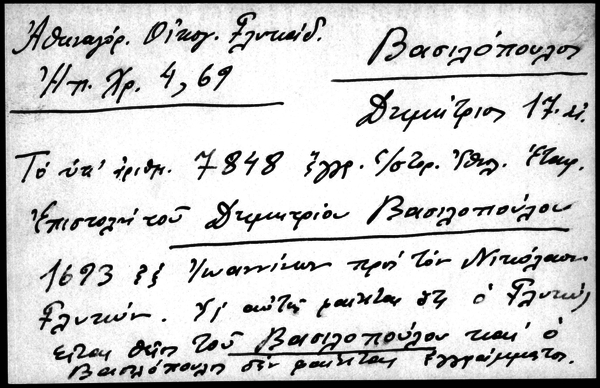 Ἀθηναγόρ. Οἰκογ. Γλυκαίδ.
Ἠπ. Χρ. 4, 69
Βασιλόπουλος
Δημήτριος 17. αἰ.
Τό ὑπ' ἀριθμ. 7848 ἔγγρ. Ἐθν. Ἑταιρ.
Ἐπιστολή τοῦ Δημητρίου Βασιλοπούλου
1693 ἐξ Ἰωαννίνων πρός τόν Νικόλαον
Γλυκύν. αὐτῆς φαίνεται ὅτι ὁ Γλυκύς
εἶναι θεῖος τοῦ Βασιλοπούλου καί ὁ
Βασιλόπουλος δέν φαίνεται ἐγγράμματος.